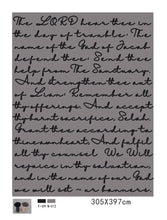 The LORD hear thee in
the day of trouble. The
name of the God of Jacob
defend thee. Send thee
help from The Sanctuary.
And strengthen thee out
of Zion. Remember all
thy offerings. And accept
thy burnt sacrifice. Selah.
Grant thee according to
thine own heart. And fulfill
all thy counsel. We Will
rejoice in thy salvation,
and in the name of our God
we will set
305X397cm